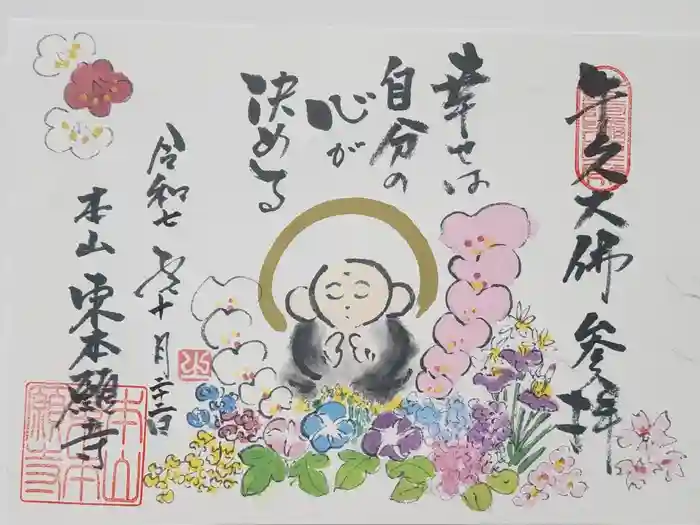 牛久大佛 参拝
幸せは
自分の
心が
決める
令和七年十月二十二日
本山 東本願寺
本山東本願寺